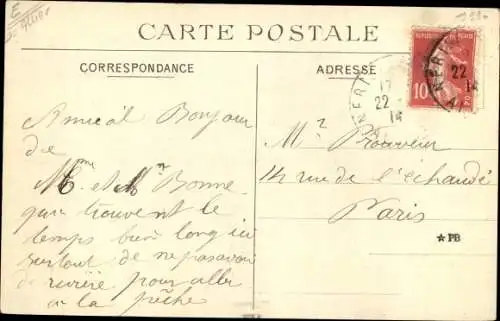 CARTE POSTALE
CORRESPONDANCE
ADRESSE
Amical Bonjour
de
Mme et Mr Bonne
qui trouvent le
temps bien long ici
surtout de ne pas avoir
de rivière pour aller
a la pêche
Mr Prouveur
14 rue de l'échaudé
Paris
★PB
10
NERI
22
14
22
14